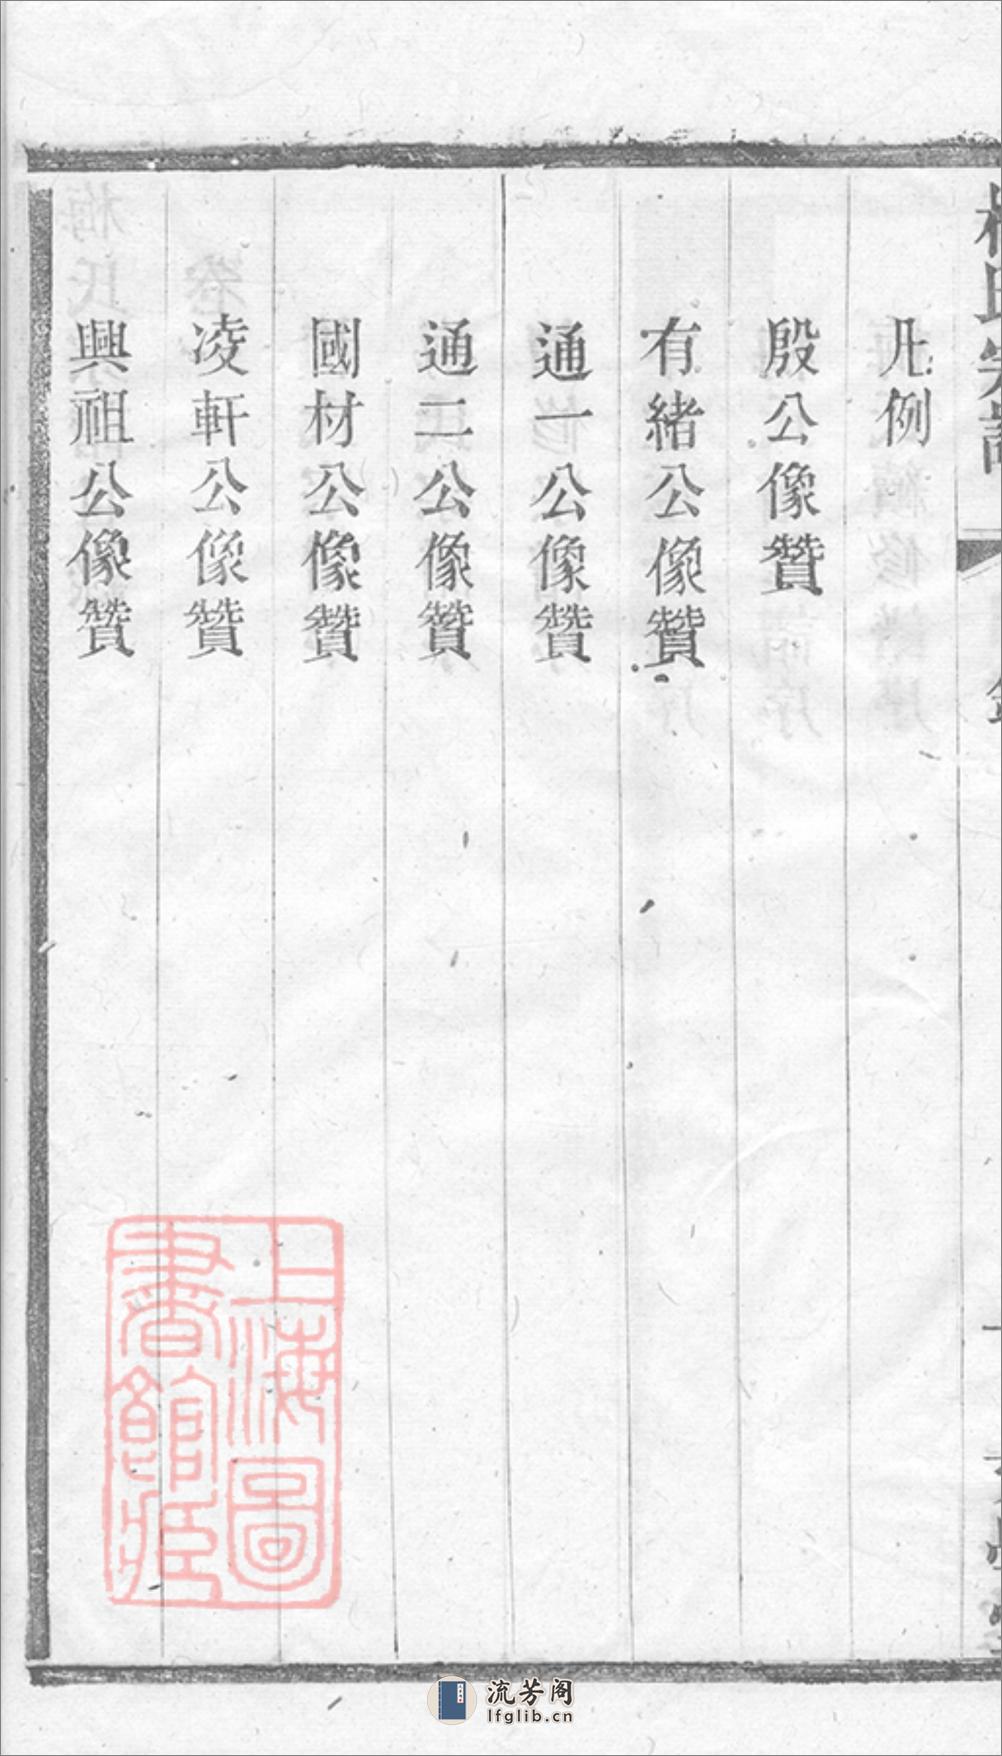 凡例
殷公像贊
有緒公像贊
通一公像贊
通二公像贊
國材公像贊
凌軒公像贊
興祖公像贊
上海圖
書館藏
流芳阁
lfglib.cn